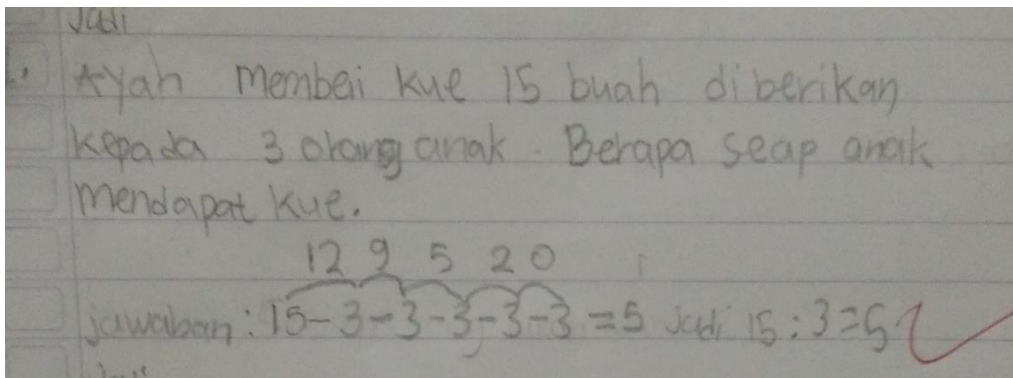 Jadi
1. Ayah membei kue 15 buah diberikan
kepada 3 orang anak. Berapa seap anak
mendapat kue.
12 9 5 2 0
jawaban : 15-3-3-3-3-3 = 5 jadi 15 : 3 = 5